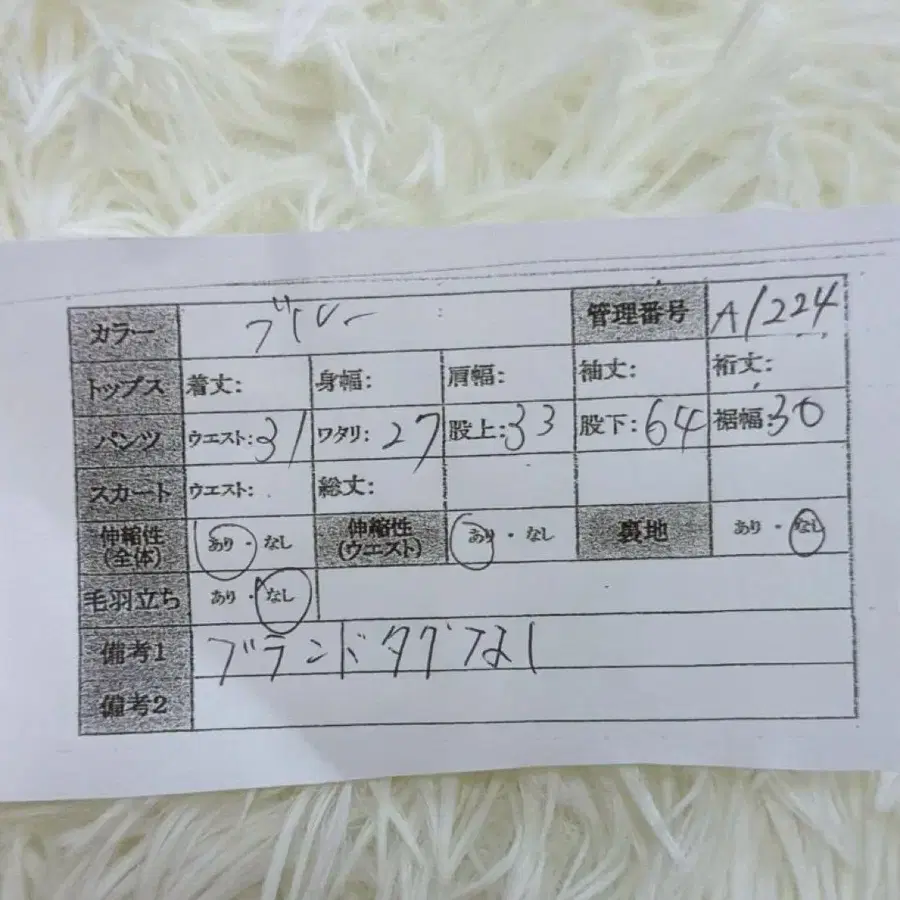 カラー ブルー 管理番号 A1224
トップス 着丈: 身幅: 肩幅: 袖丈: 裄丈:
パンツ ウエスト:31 ワタリ:27 股上:33 股下:64 裾幅:30
スカート ウエスト: 総丈:
伸縮性(全体) あり・なし 伸縮性(ウエスト) あり・なし 裏地 あり・なし
毛羽立ち あり・なし
備考1 ブランドタグなし
備考2